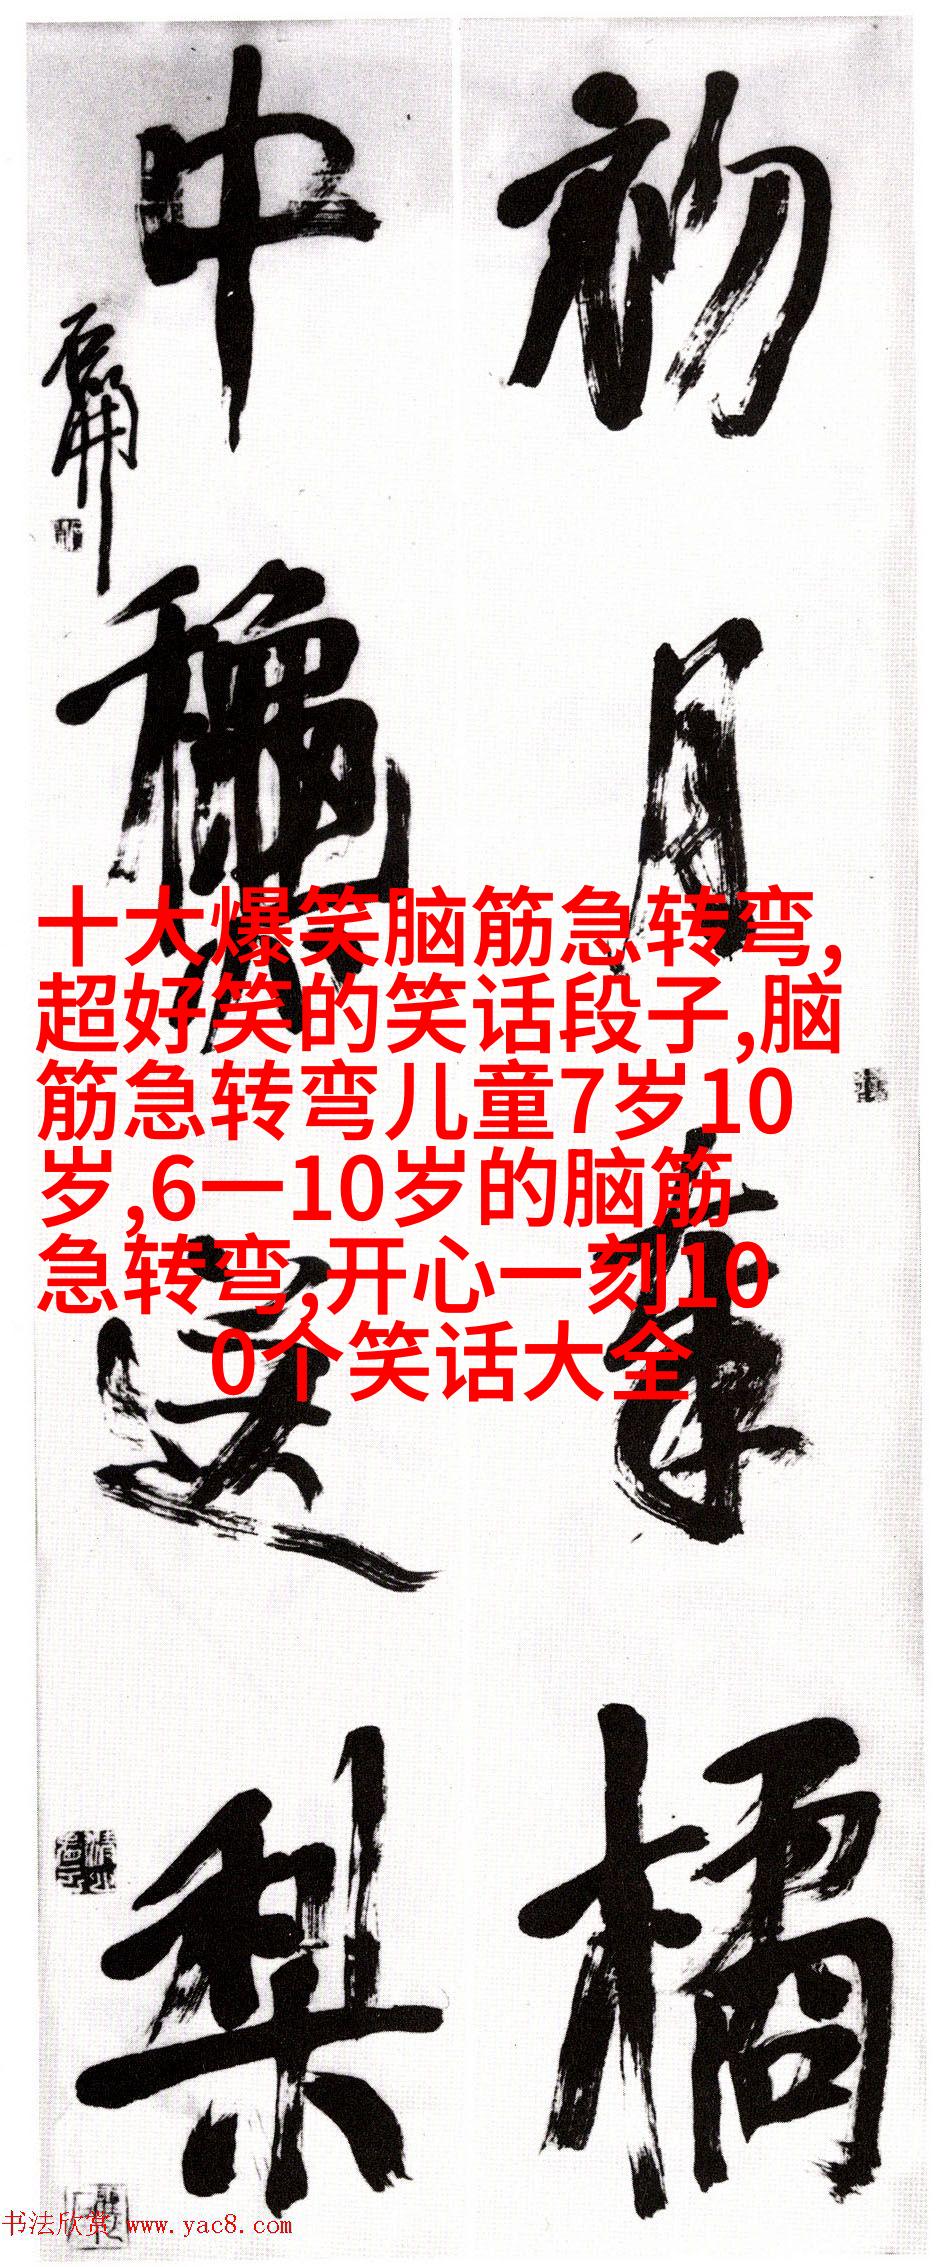 初月橘
中梨
石开
十大爆笑脑筋急转弯,
超好笑的笑话段子,脑
筋急转弯儿童7岁10
岁,6一10岁的脑筋
急转弯,开心一刻10
0个笑话大全
书法欣赏 www.yac8.com